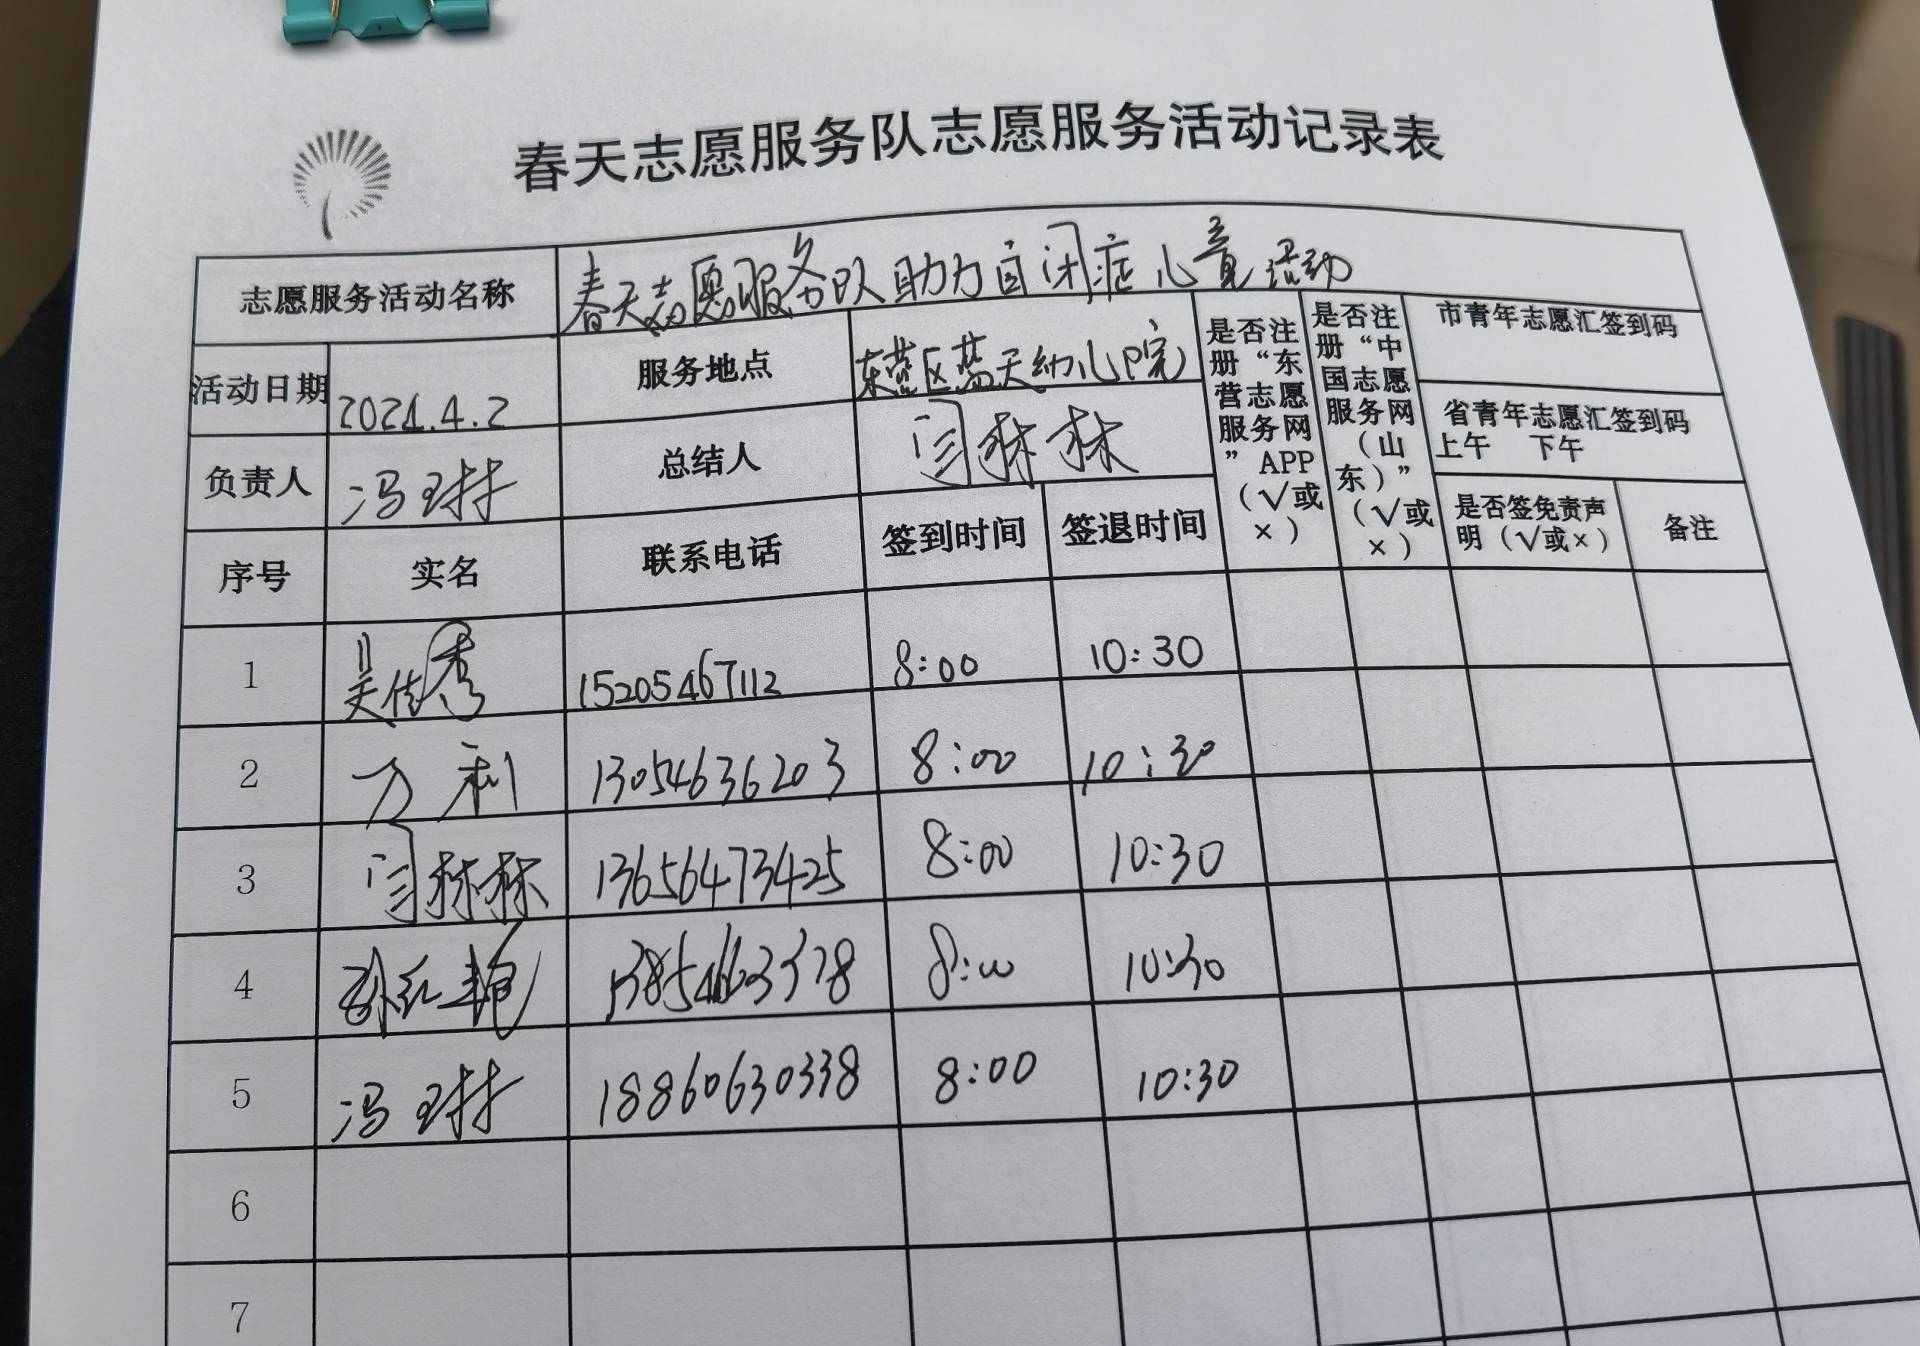 春天志愿服务队志愿服务活动记录表
志愿服务活动名称 春天志愿服务队助力自闭症儿童活动
活动日期 2021.4.2 服务地点 东营区蓝天幼儿院
是否注册“东营志愿服务网”APP（√或×）
是否注册“中国志愿服务网（山东）”（√或×）
市青年志愿汇签到码
省青年志愿汇签到码
上午 下午
负责人 冯琳 总结人 闫林林
序号 实名 联系电话 签到时间 签退时间 是否签免责声明（√或×） 备注
1 吴佳秀 15205467112 8:00 10:30
2 万利 13054636203 8:00 10:30
3 闫林林 13656473425 8:00 10:30
4 孙红艳 8:00 10:30
5 冯琳 18860630338 8:00 10:30
6
7